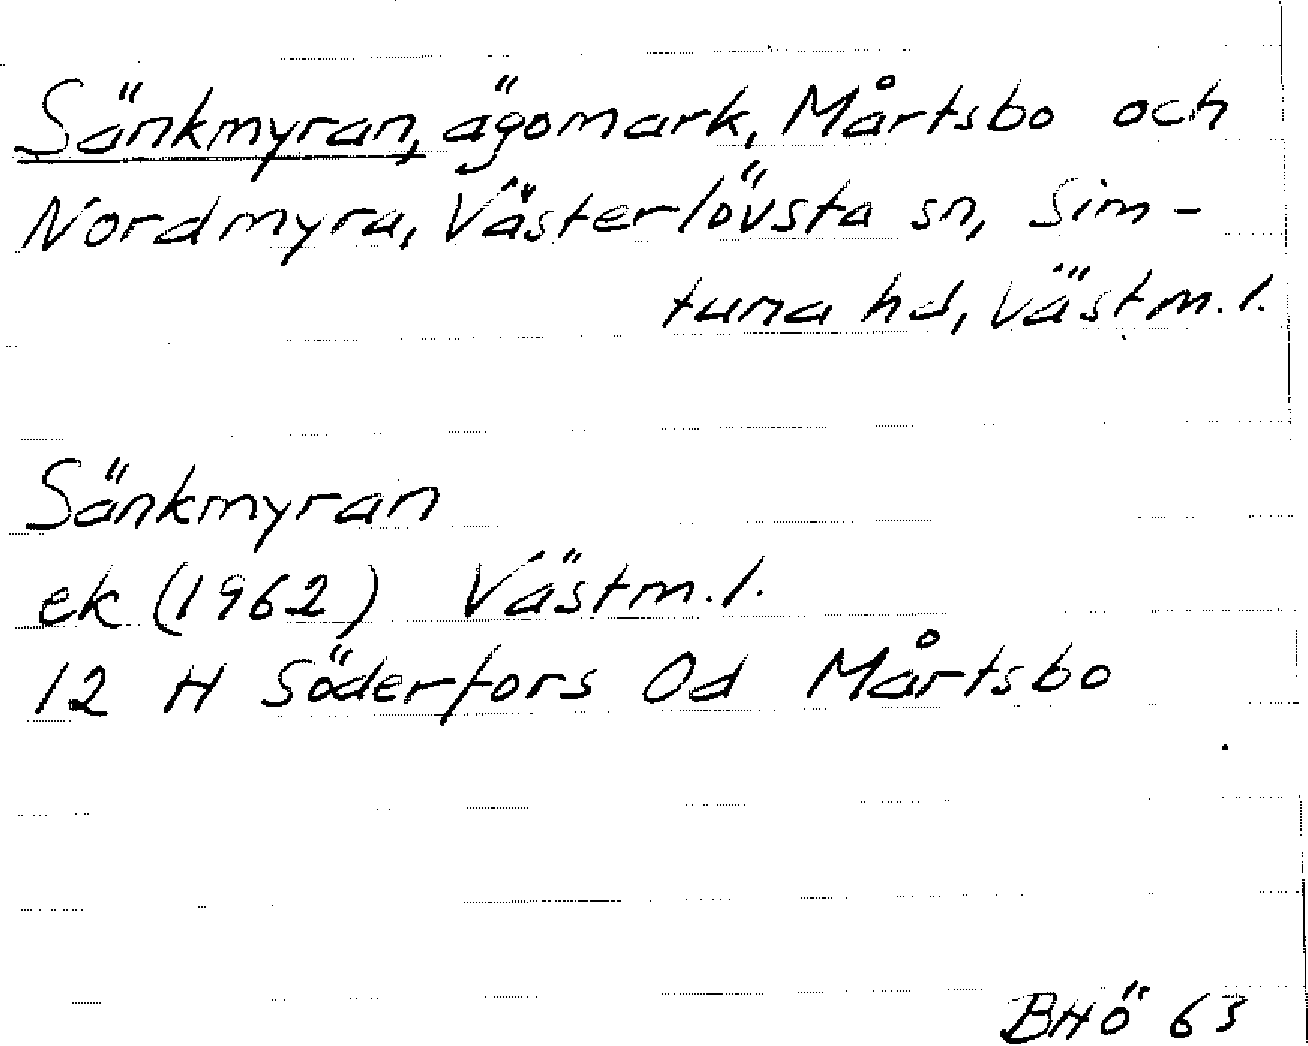 Sänkmyran, ägomark, Mårtsbo och
Nordmyra, Västerlövsta sn, Sim-
tuna hd, Västm.l.
Sänkmyran
ek (1962) Västm.l.
12 H Söderfors 0d Mårtsbo
BHÖ 63